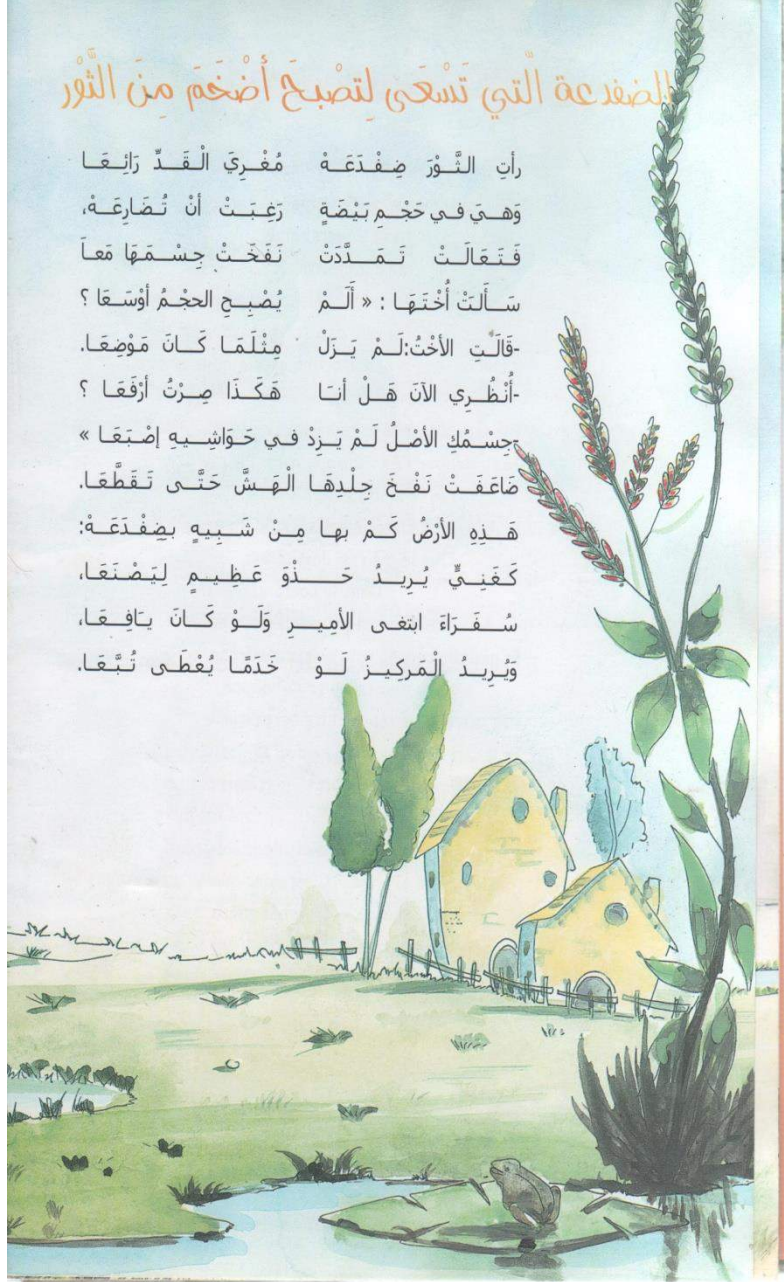 الضفدعة الَّتي تَسْعَى لِتصْبحَ أضْخَمَ مِنَ الثَّوْر
رأتِ الثَّوْرَ ضِفْدَعَهْ مُغْرِيَ الْقَدِّ رَائِعَا
وَهيَ في حَجْمِ بَيْضَةٍ رَغِبَتْ أنْ تُضَارِعَهْ،
فَتَعَالَتْ تَمَدَّدَتْ نَفَخَتْ جِسْمَهَا مَعاَ
سَأَلَتْ أُخْتَهَا : « أَلَمْ يُصْبِحِ الحجْمُ أوْسَعَا ؟
-قَالَتِ الأخْتُ:لَمْ يَزَلْ مِثْلَمَا كَانَ مَوْضِعَا.
-أُنْظُرِي الآنَ هَلْ أنَا هَكَذَا صِرْتُ أرْفَعَا ؟
-جِسْمُكِ الأصْلُ لَمْ يَزِدْ في حَوَاشِيهِ إصْبَعَا »
ضَاعَفَتْ نَفْخَ جِلْدِهَا الْهَشَّ حَتَّى تَقَطَّعَا.
هَذِهِ الأرْضُ كَمْ بها مِنْ شَبِيهٍ بضِفْدَعَهْ:
كَغَنِيٍّ يُرِيدُ حَذْوَ عَظِيمٍ لِيَصْنَعَا،
سُفَرَاءَ ابتغى الأمِيرِ وَلَوْ كَانَ يَافِعَا،
وَيُرِيدُ الْمَركِيزُ لَوْ خَدَمًا يُعْطَى تُبَّعَا.